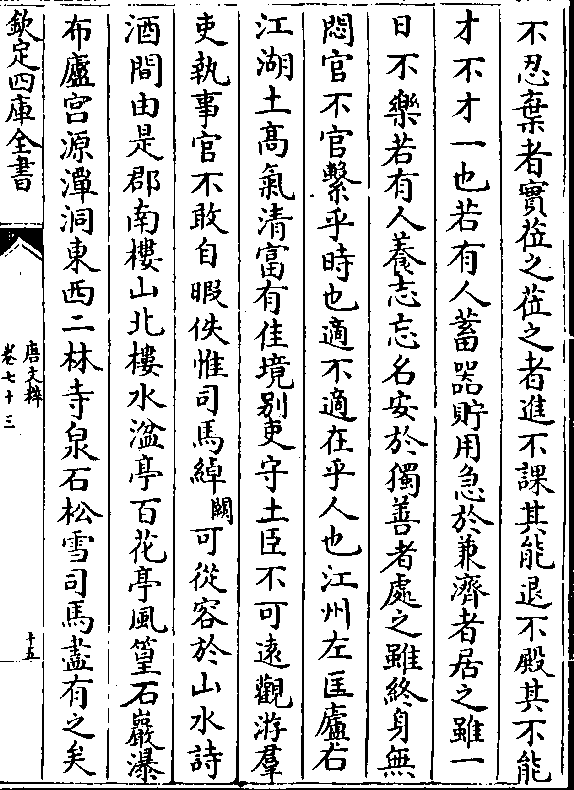 不忍棄者實莅之莅之者進不課其能退不殿其不能
才不才一也若有人蓄器貯用急於兼濟者居之雖一
日不樂若有人養志忘名安於獨善者處之雖終身無
悶官不官繫乎時也適不適在乎人也江州左匡廬右
江湖土髙氣清富有佳境别吏守土臣不可逺觀游羣
吏執事官不敢自暇佚惟司馬綽闕可從容於山水詩
酒間由是郡南樓山北樓水湓亭百花亭風篁石巖瀑
布廬宫源潭洞東西二林寺泉石松雪司馬盡有之矣
欽定四庫全書
唐文粹
卷七十三
十五